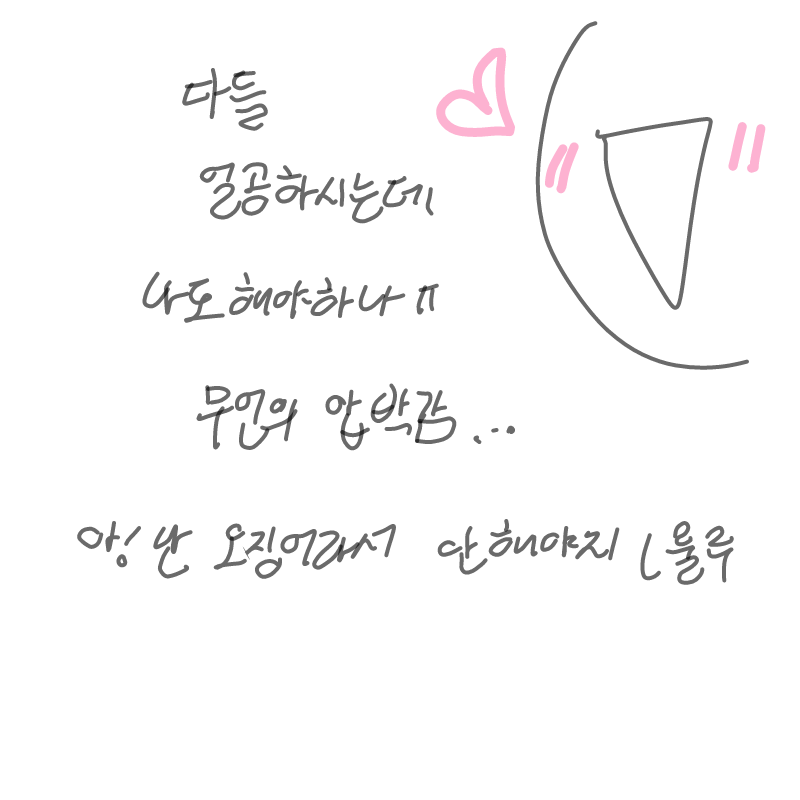 다들
얼공하시는데
나도 해야하나 ㅠ
무언의 압박감...
아! 난 오징어라서 안해야지 ( 울루